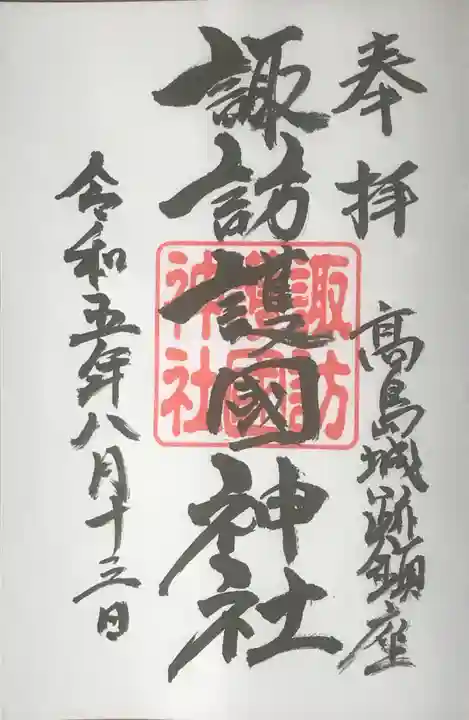 奉拝
高島城跡鎮座
諏訪護國神社
諏訪
護國
神社
令和五年八月十三日